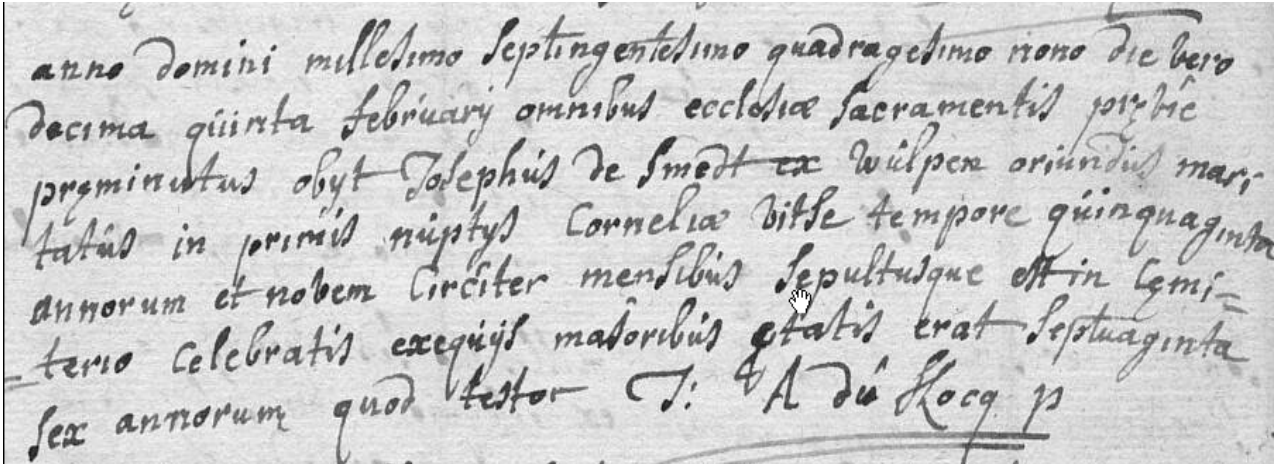 anno domini millesimo septingentesimo quadragesimo nono die vero
decima quinta februarij omnibus ecclesiæ sacramentis pręvie
pręminutus obijt Josephus de Smedt ex Wulpen oriundus mari
tatus in primis nuptijs Corneliæ Vitse tempore quinquaginta
annorum et novem Circiter mensibus sepultusque est in Cęmi=
=terio Celebratis exequijs maioribus ętatis erat septuaginta
sex annorum quod testor J: A du Hocq p